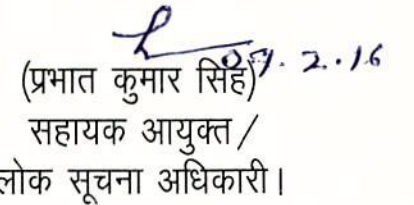 09.2.16
(प्रभात कुमार सिंह)
सहायक आयुक्त/
लोक सूचना अधिकारी।